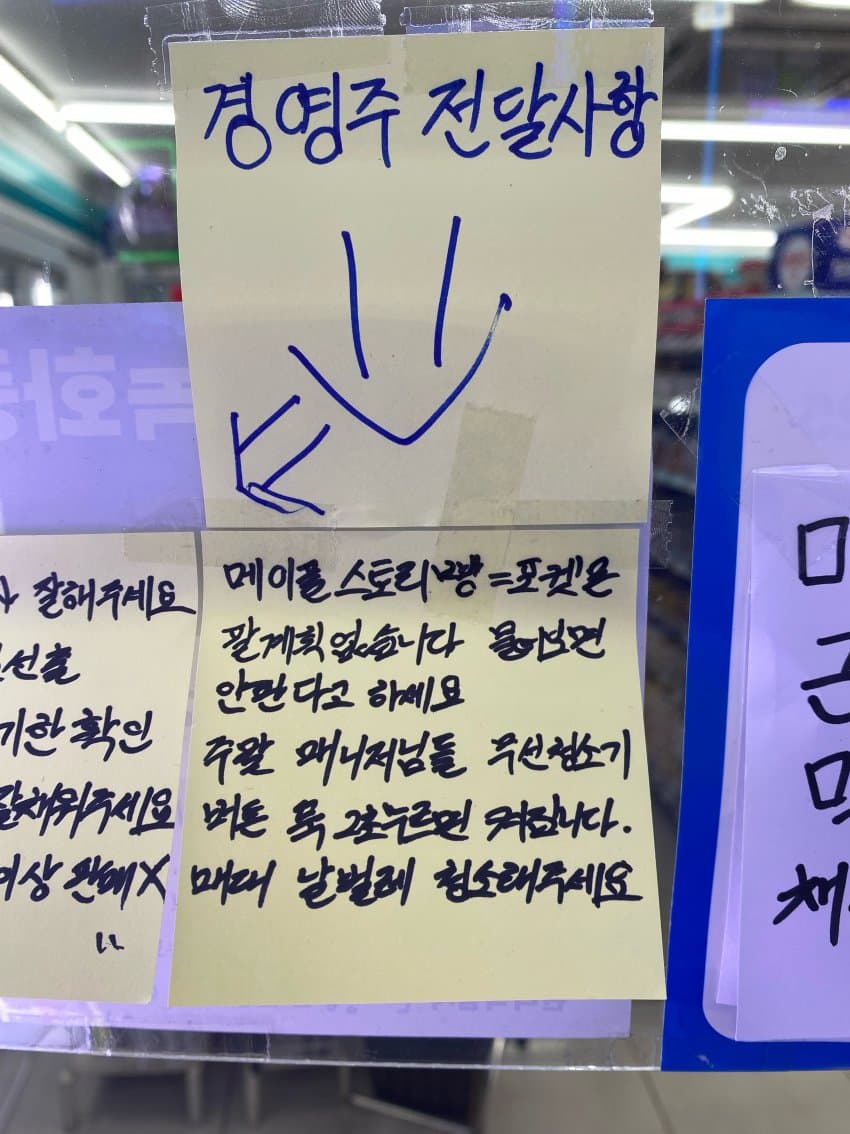 경영주 전달사항
잘해주세요
선출
기한 확인
잘채워주세요
이상 판매X
메이플스토리빵=포켓은
팔계획없습니다 물어보면
안판다고 하세요
주말 매니저님들 무선청소기
버튼 뚝 2초누르면 켜집니다.
매대 날벌레 청소해주세요
녹화